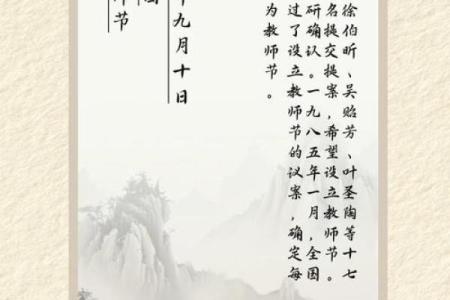 徐伯昕、吴贻芳、叶圣陶等十七
名提交提案，希望设立教师节。
研确认。一九八五年一月，全国
过了设立教师节的议案，确定每
为教师节。
九月十日
师节